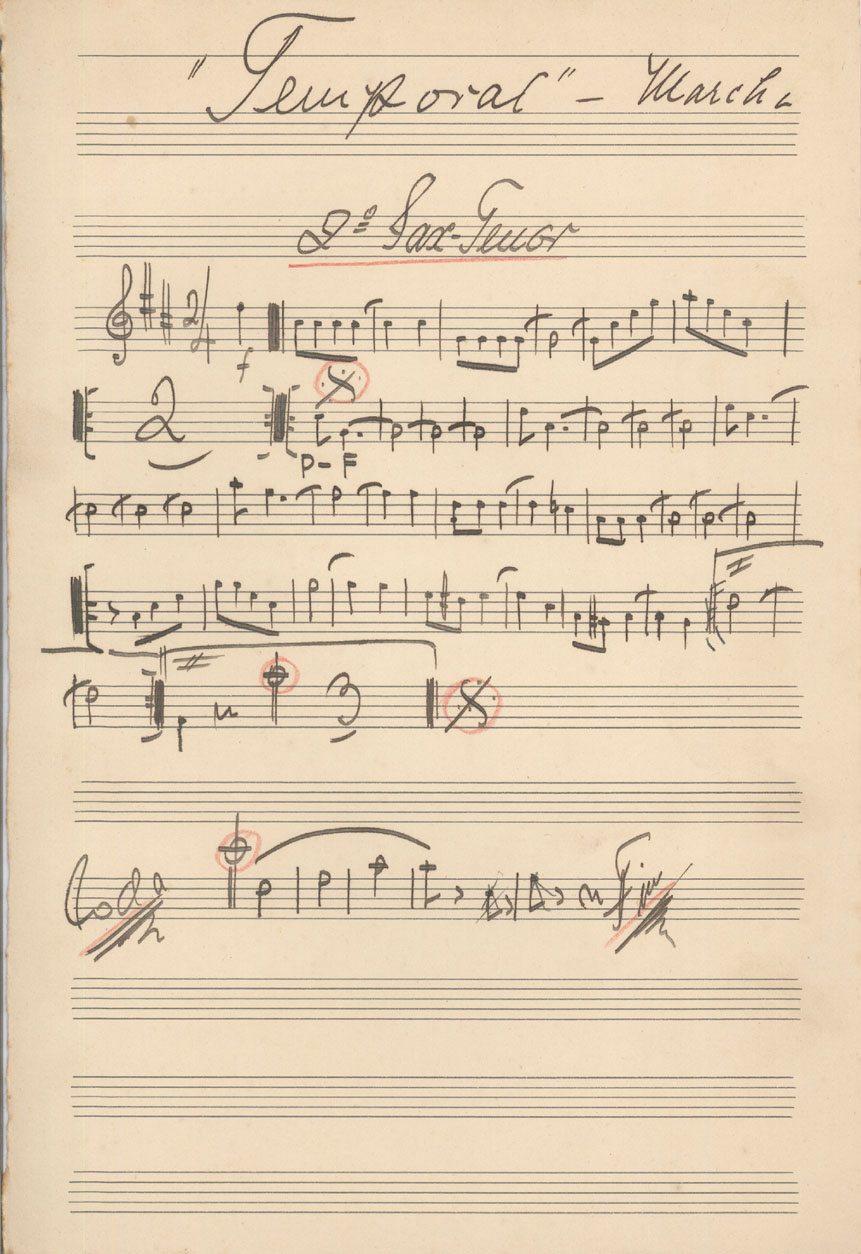 "Temporal" – Marcha
2º Sax-Tenor
2/4
f
2
P-F
3
Coda
Fim